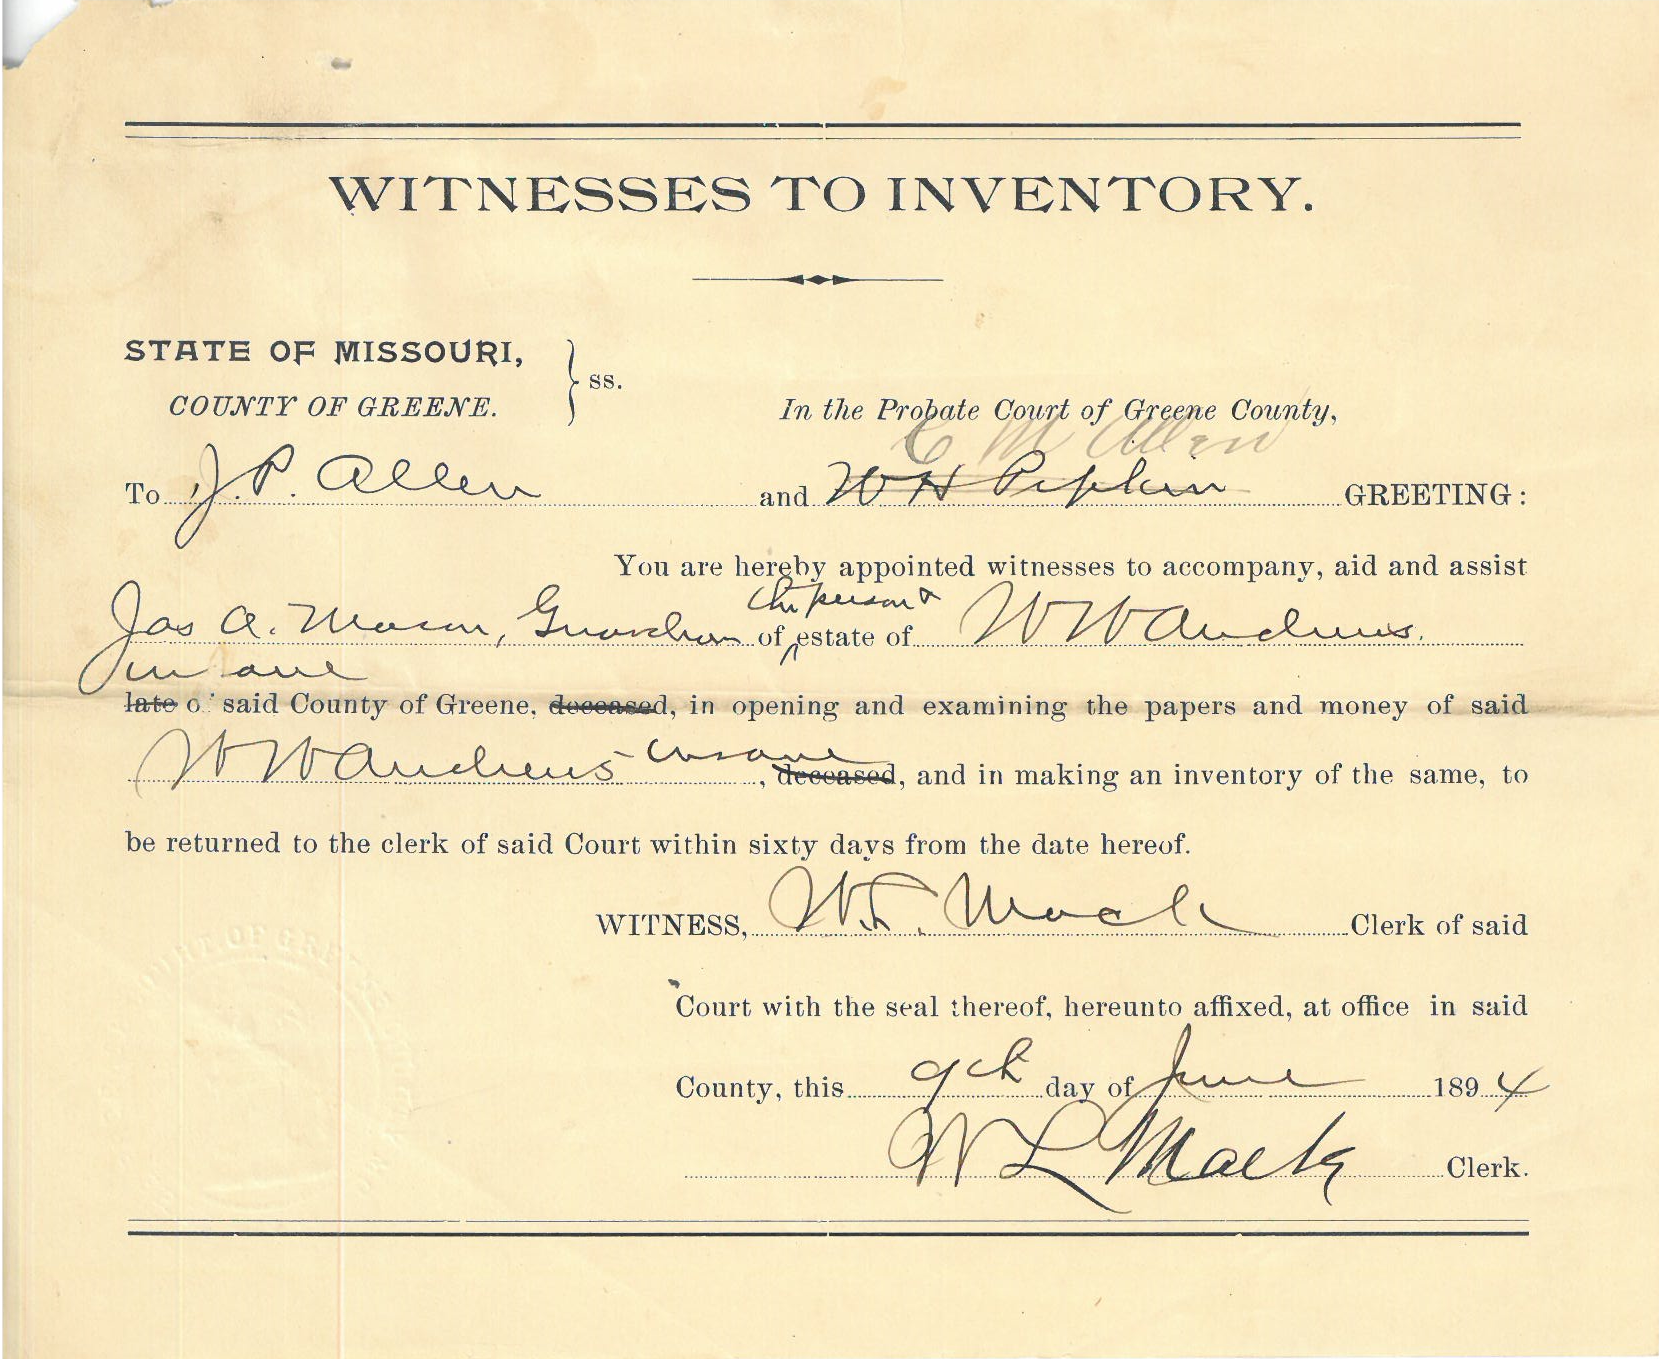 WITNESSES TO INVENTORY.
STATE OF MISSOURI,
COUNTY OF GREENE.
ss.
In the Probate Court of Greene County,
C M Allen
To J. P. Allen and W H Pipkin GREETING:
You are hereby appointed witnesses to accompany, aid and assist
the person &
Jas A. Mason, Guardian of estate of W W Andrews.
insane
late of said County of Greene, deceased, in opening and examining the papers and money of said
W W Andrews insane, deceased, and in making an inventory of the same, to
be returned to the clerk of said Court within sixty days from the date hereof.
WITNESS, W. L. Mack Clerk of said
Court with the seal thereof, hereunto affixed, at office in said
County, this 9th day of June 1894
W L Mack Clerk.
COURT OF GREENE